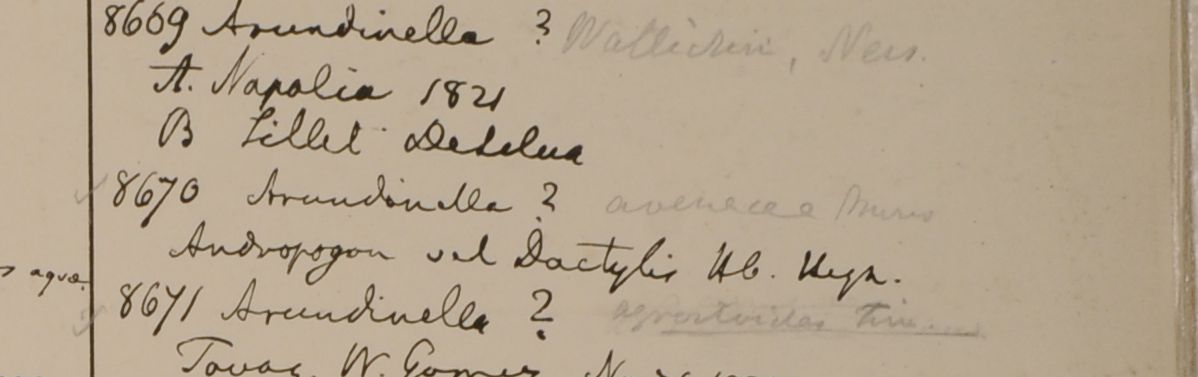 8669 Arundinella ? Wallichii, Nees.
A. Napalia 1821
B Sillet Deselua
8670 Arundinella ? avenacea Munro
Andropogon vel Dactylis Hb. Heyn.
s aquæ.
8671 Arundinella ? agrostoides Trin.
Tavoy. W. Gomez